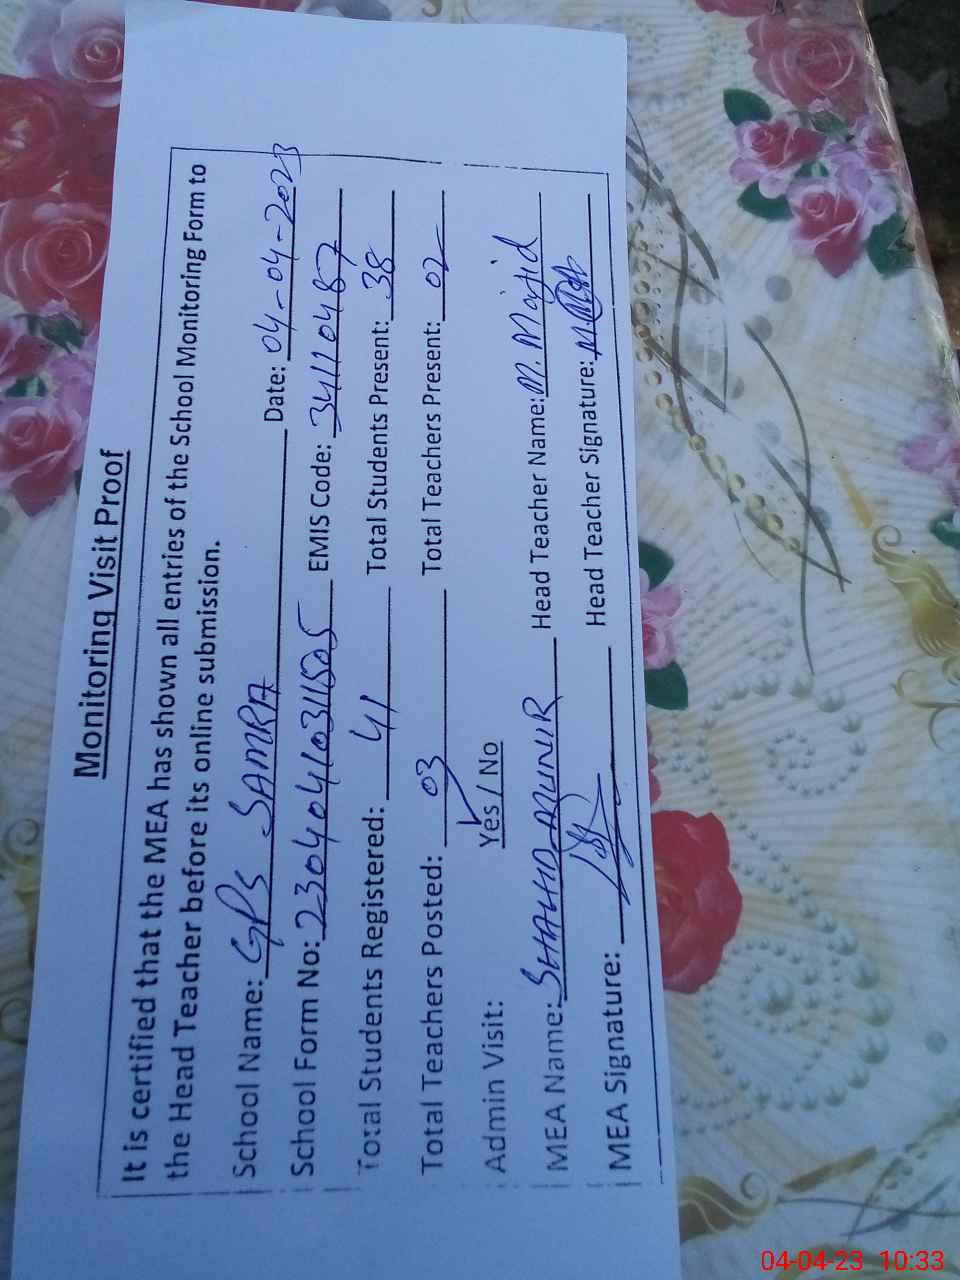 Monitoring Visit Proof
It is certified that the MEA has shown all entries of the School Monitoring Form to
the Head Teacher before its online submission.
School Name: GPS SAMRA Date: 04-04-2023
School Form No: 230404103111505 EMIS Code: 34110487
Total Students Registered: 41 Total Students Present: 38
Total Teachers Posted: 03 Total Teachers Present: 02
Admin Visit: Yes / No
MEA Name: SHAHID MUNIR Head Teacher Name: M. Majid
MEA Signature: Head Teacher Signature:
04-04-23 10:33